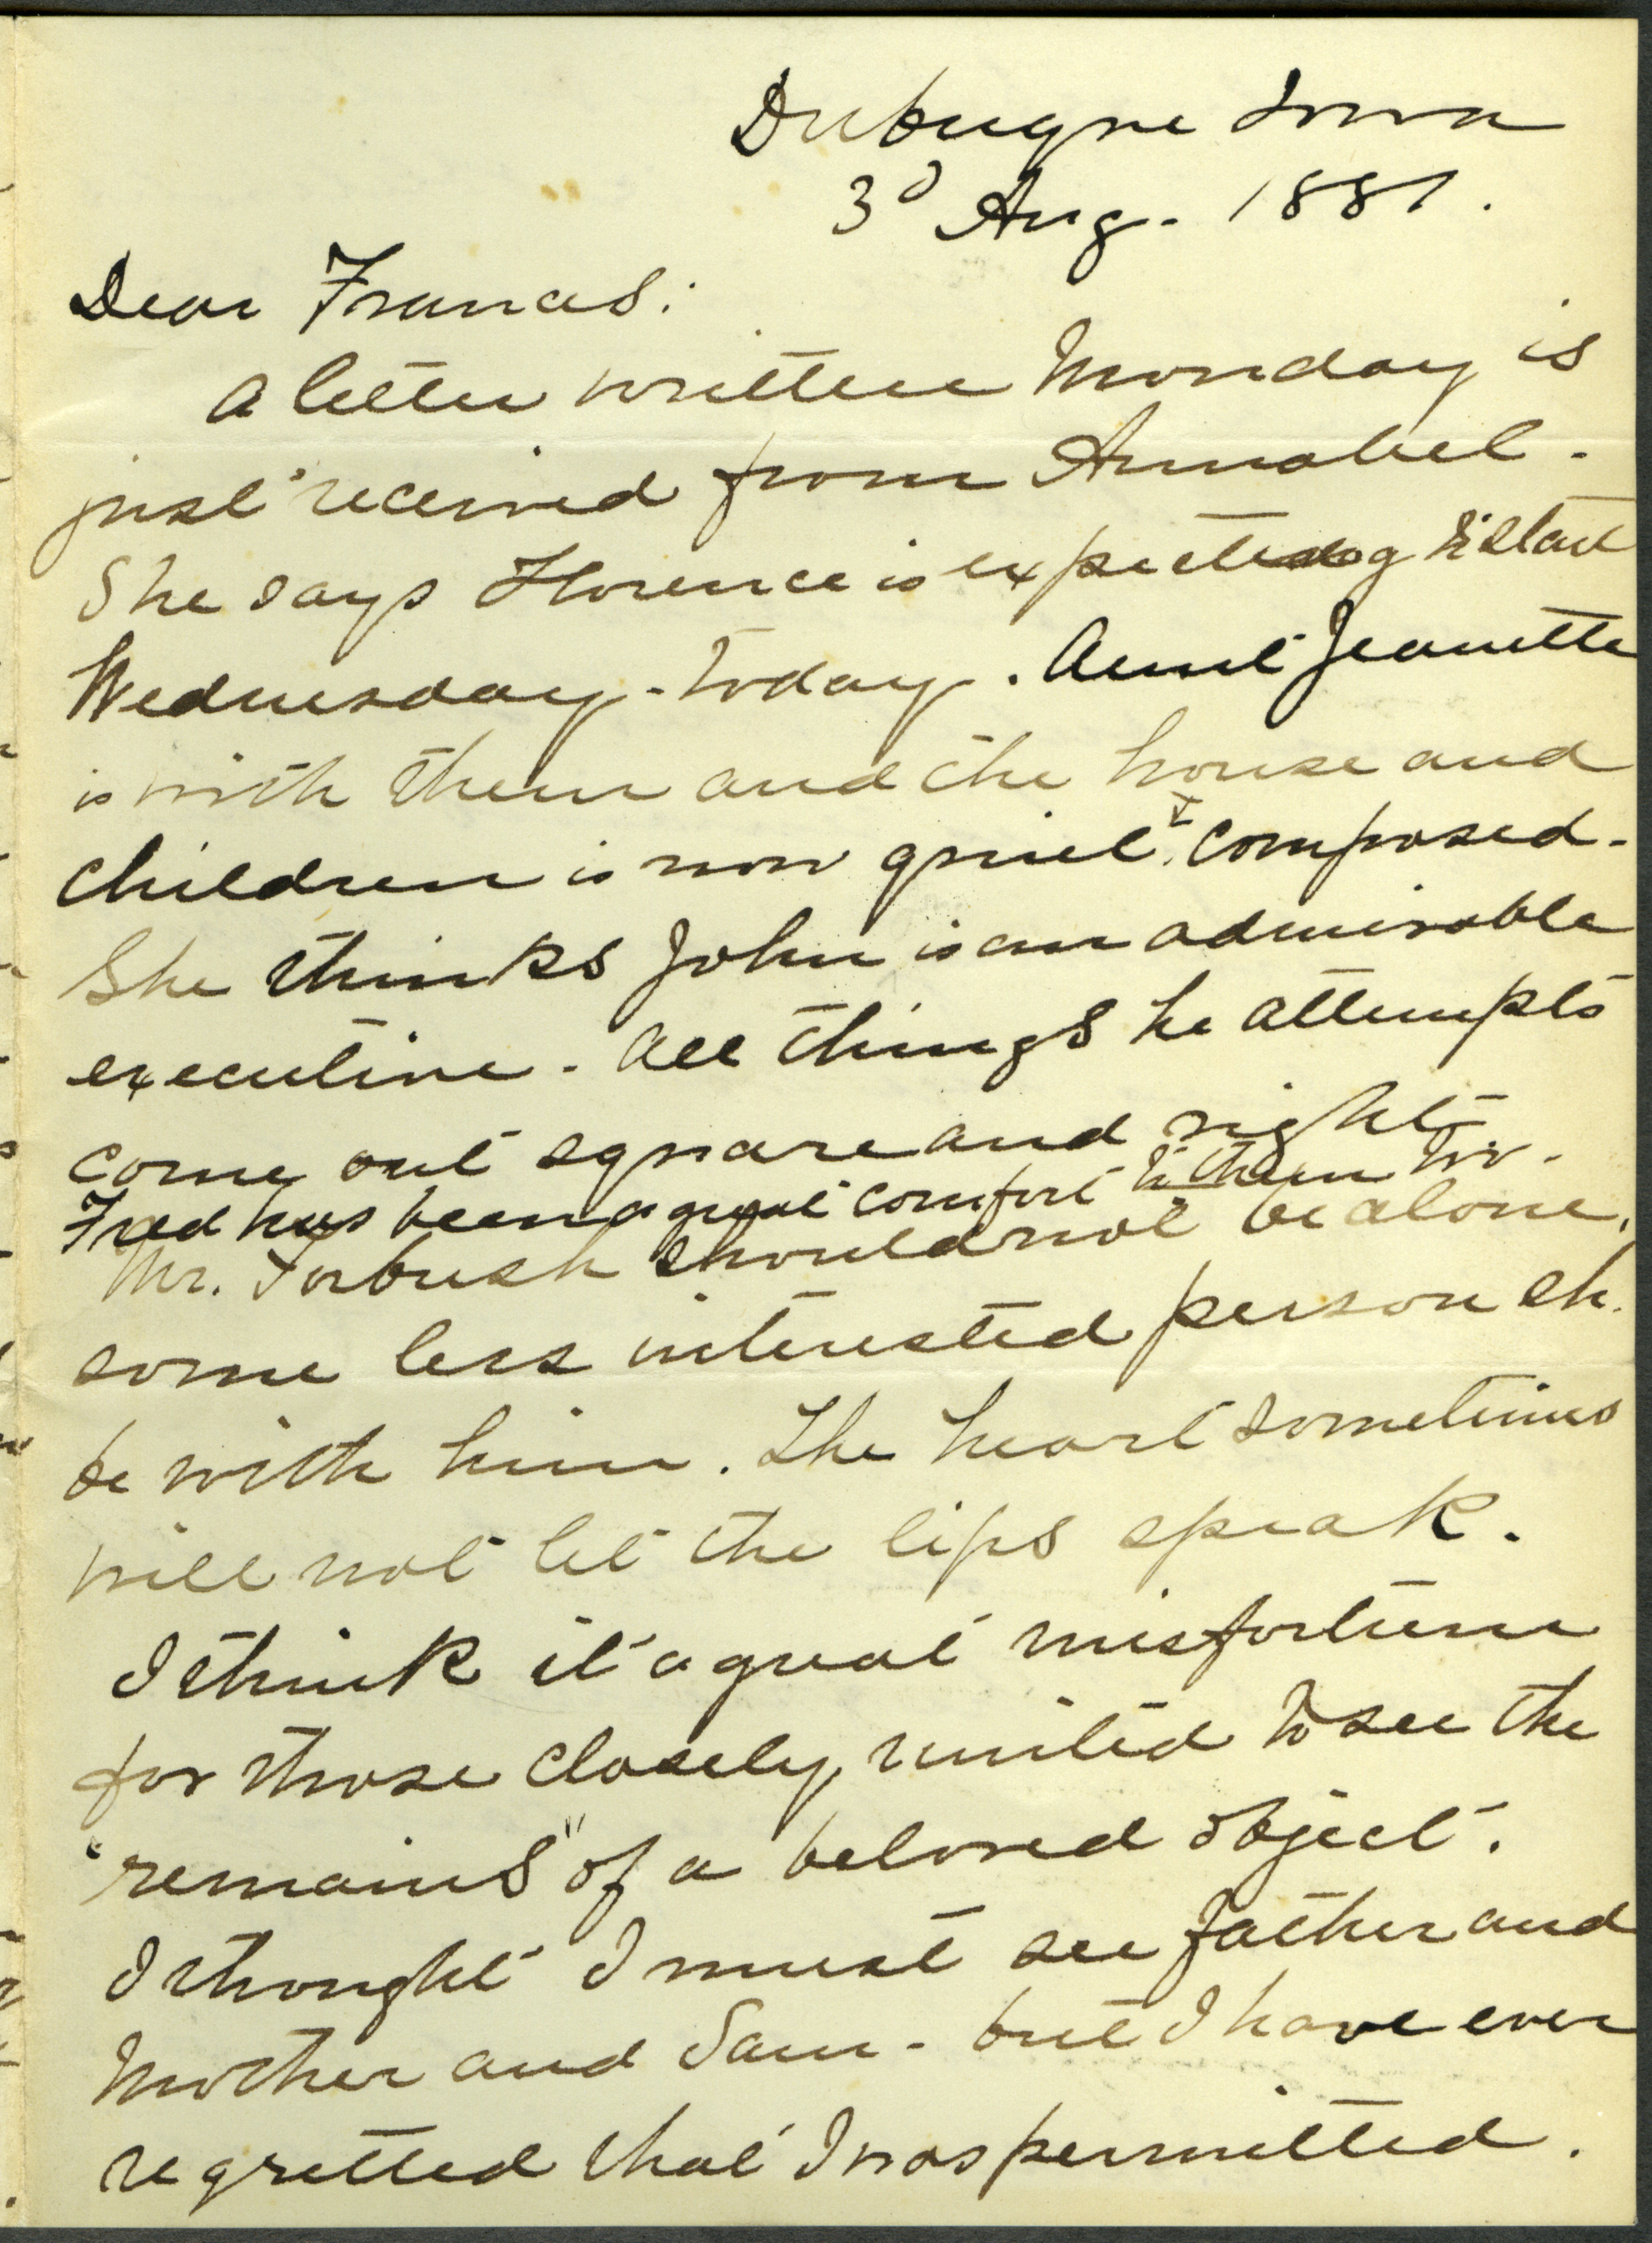 Dubuque Iowa
3d Aug. 1881.
Dear Francis:
A letter written Monday is
just received from Annabel.
She says Florence is expecting to start
Wednesday - today. Aunt Jeanette
is with them and the house and
children is now quiet & composed.
She thinks John is an admirable
executive. All things he attempts
come out square and right
Fred has been a great comfort to them too.
Mr. Forbush should not be alone,
some less interested person sh.
be with him. The heart sometimes
will not let the lips speak.
I think it a great misfortune
for those closely united to see the
"remains" of a beloved object.
I thought I must see father and
Mother and Sam - but I have ever
regretted that I was permitted.